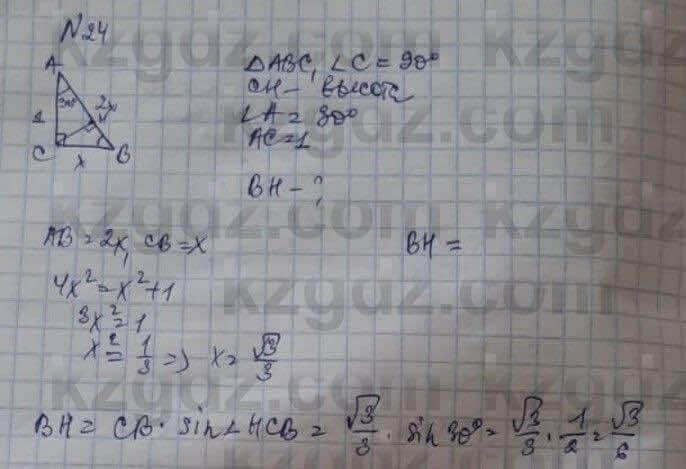 N24
A
△ABC, ∠C = 90°
CH - высота
30°
2x
∠A = 30°
1
AC = 1
C
B
x
BH - ?
AB = 2x, CB = x
BH =
4x² = x² + 1
3x² = 1
x² = 1/3 => x = √3/3
BH = CB · sin∠HCB = √3/3 · sin 30° = √3/3 · 1/2 = √3/6
kzgdz.com